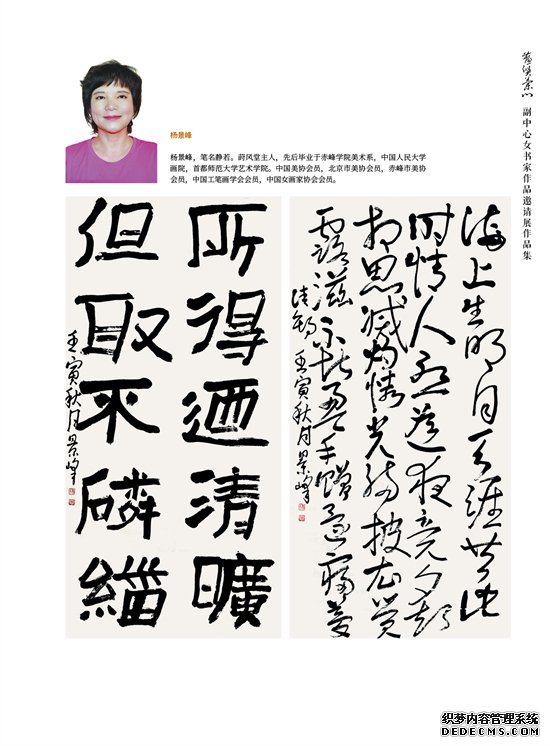 副中心女书家作品邀请展作品集
杨景峰
杨景峰，笔名静若。莳风堂主人，先后毕业于赤峰学院美术系，中国人民大学
画院，首都师范大学艺术学院。中国美协会员，北京市美协会员，赤峰市美协
会员，中国工笔画学会会员，中国女画家协会会员。
海上生明月天涯共此
时情人怨遥夜竟夕起
相思滅燭憐光满披衣覺
露滋不堪盈手贈還寢夢
佳期 壬寅秋月景峰
所得迺清曠
但取不磷緇
壬寅秋月景峰
织梦内容管理系统
DEDECMS.COM